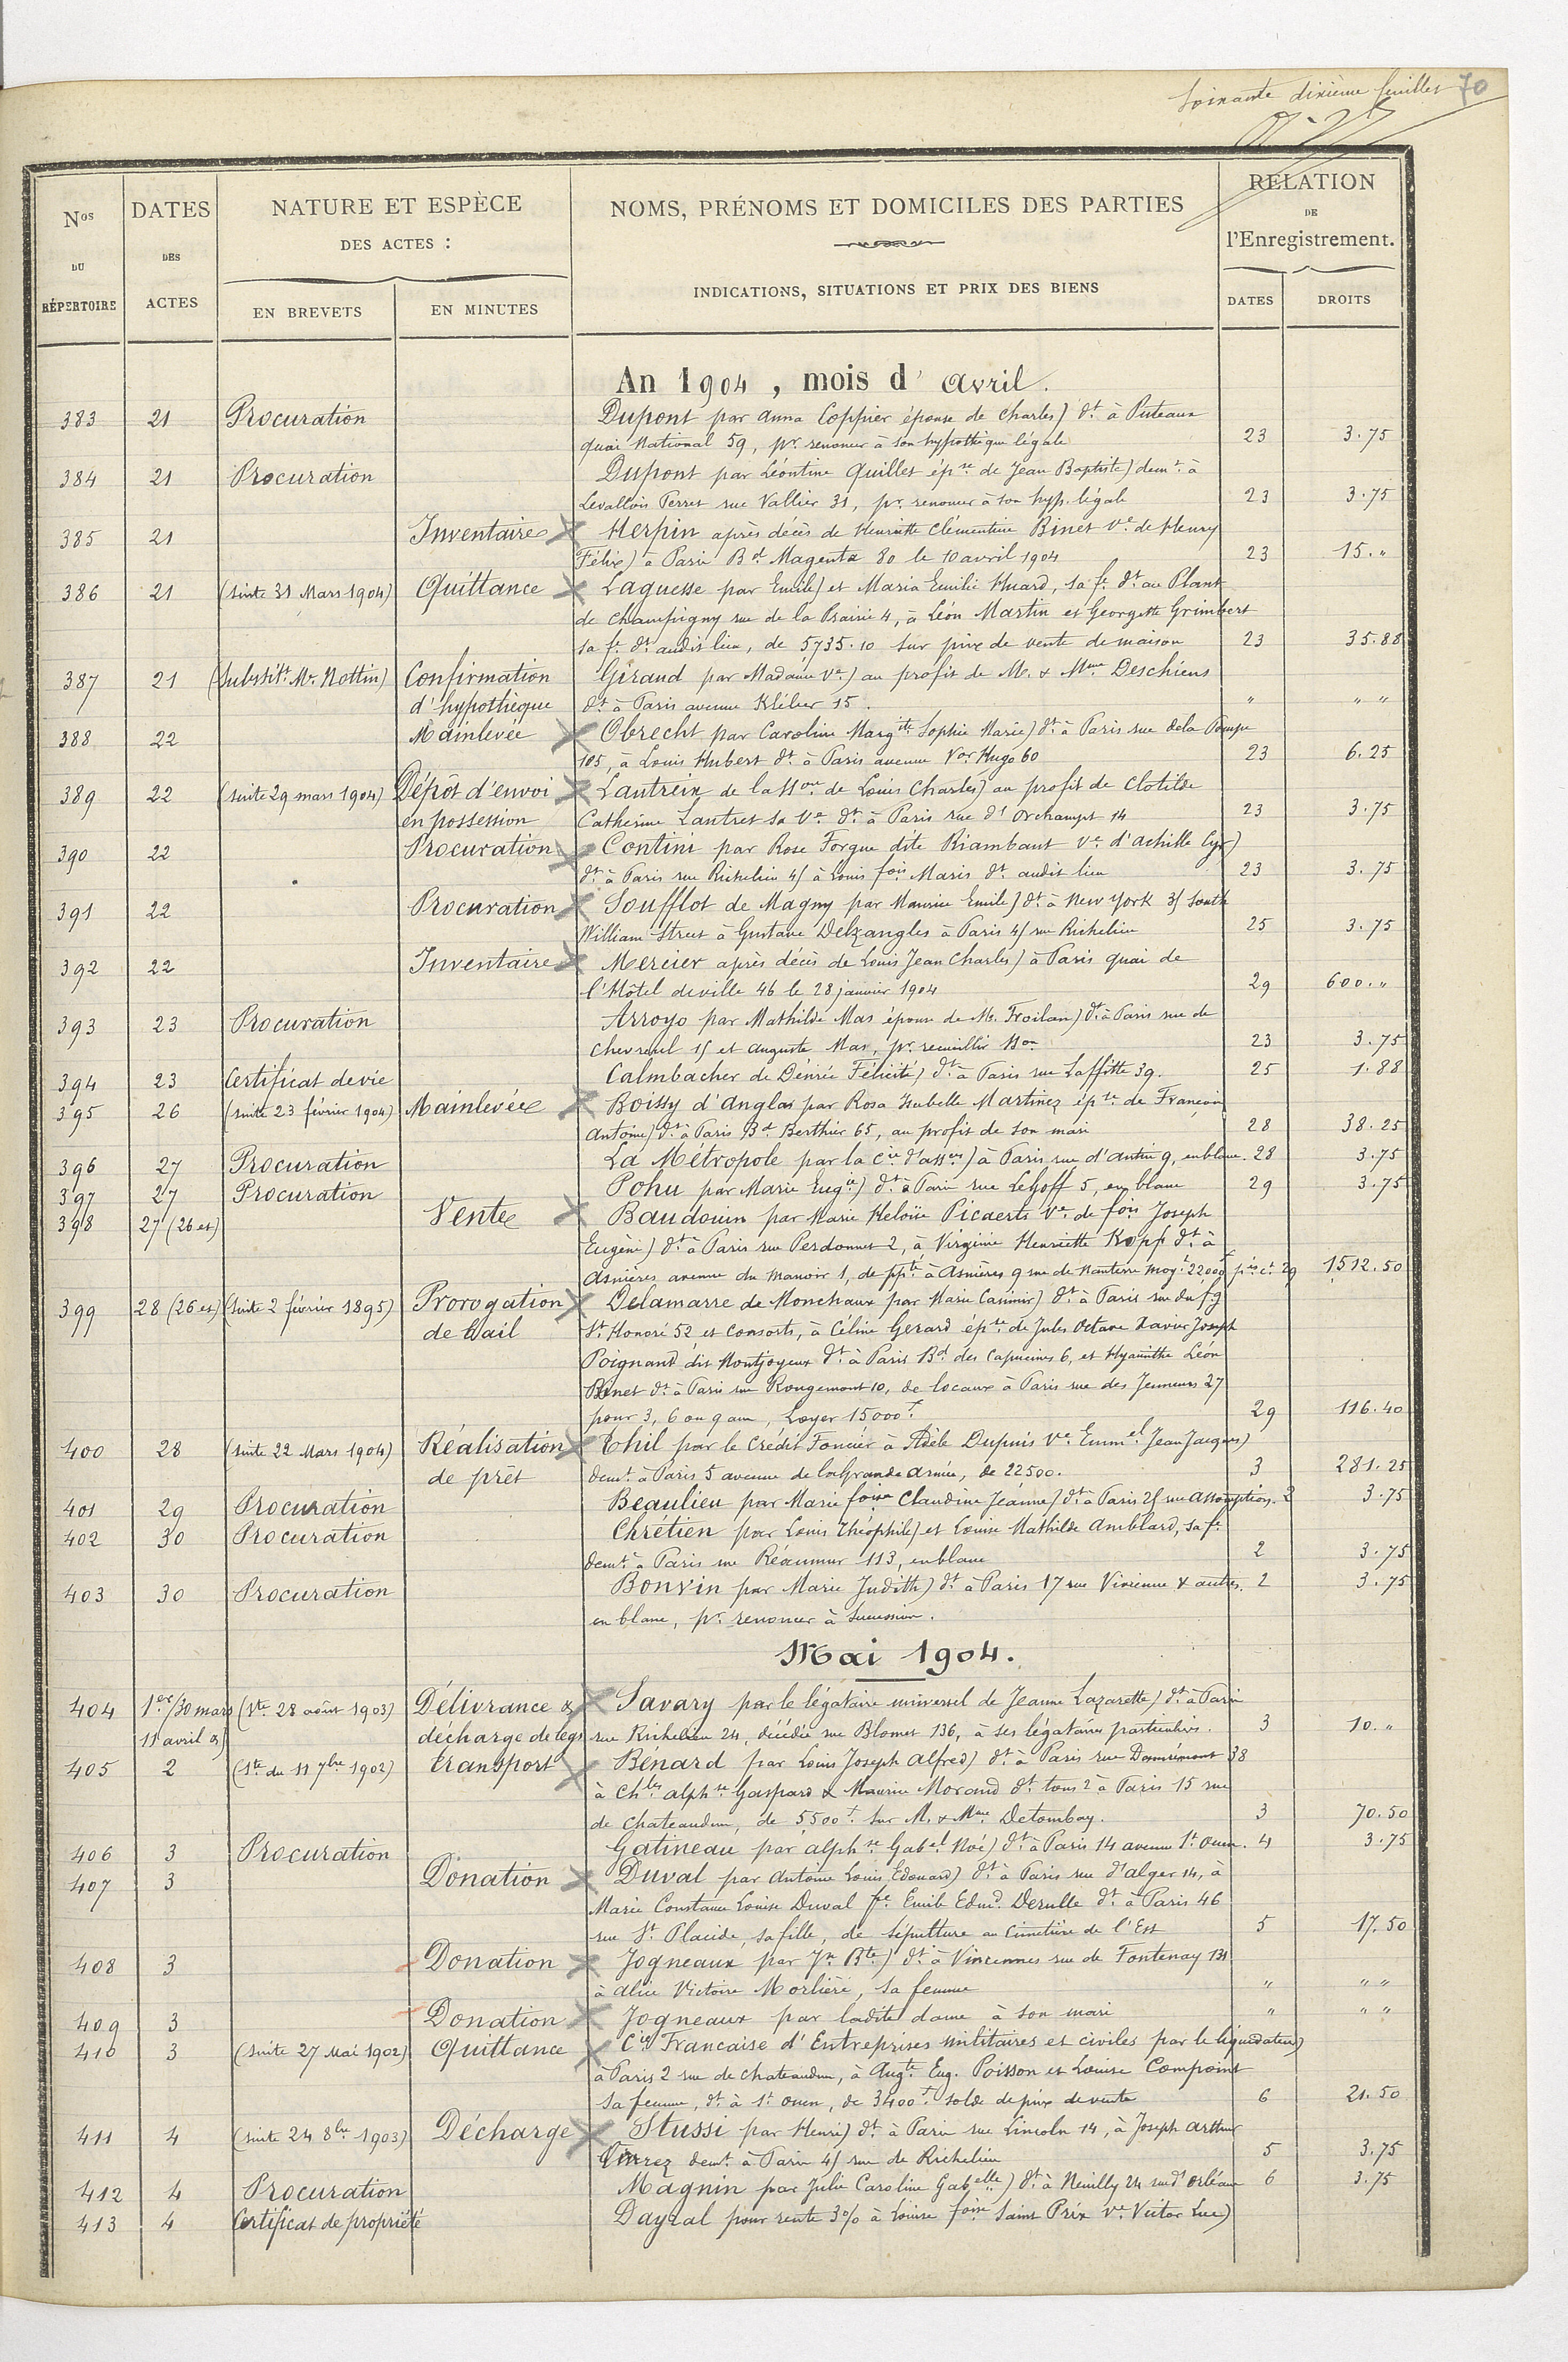 Soixante dixième feuillet 70
Nos DU RÉPERTOIRE
DATES DES ACTES
NATURE ET ESPÈCE DES ACTES :
EN BREVETS
EN MINUTES
NOMS, PRÉNOMS ET DOMICILES DES PARTIES
INDICATIONS, SITUATIONS ET PRIX DES BIENS
RELATION DE l'Enregistrement.
DATES
DROITS
An 1904, mois d'avril.
383 21 Procuration Dupont par Anna Coppier épouse de Charles) dt à Puteaux
quai National 59, pr. renoncer à son hypothèque légale 23 3.75
384 21 Procuration Dupont par Léontine Quillet épse de Jean Baptiste) demt à
Levallois Perret rue Vallier 31, pr. renoncer à son hyp. légale 23 3.75
385 21 Inventaire Herpin après décès de Henriette Clémentine Binet Ve de Henry
Félix) à Paris Bd Magenta 80 le 10 avril 1904 23 15."
386 21 (suite 31 Mars 1904) Quittance Laquesse par Emile) et Maria Emilie Huard, sa fe dt au Plant
de Champigny rue de la Prairie 4, à Léon Martin et Georgette Grimbert
sa fe dt audit lieu, de 5735.10 sur prix de vente de maison 23 35.88
387 21 (Substit. Me. Nottin) Confirmation Giraud par Madame Ve) au profit de M. & Mme Deschiens
d'hypothèque dt à Paris avenue Kléber 15. " " "
388 22 Mainlevée Obrecht par Caroline Margite Sophie Marie) dt à Paris rue de la Pompe
105, à Louis Hubert dt à Paris avenue Vor Hugo 60 23 6.25
389 22 (suite 29 mars 1904) Dépôt d'envoi Lautrein de la son de Louis Charles) au profit de Clotilde
en possession Catherine Lautret sa Ve dt à Paris rue d'Orchampt 14 23 3.75
390 22 Procuration Contini par Rose Forgue dite Riambaut Ve d'Achille Cyr)
dt à Paris rue Richelieu 45 à Louis fois Maris dt audit lieu 23 3.75
391 22 Procuration Soufflot de Magny par Maurice Emile) dt à New York 35 South
William Street à Gustave Delzangles à Paris 45 rue Richelieu 25 3.75
392 22 Inventaire Mercier après décès de Louis Jean Charles) à Paris quai de
l'Hôtel de ville 46 le 28 janvier 1904 29 600."
393 23 Procuration Arroyo par Mathilde Mas épouse de M. Froilan) dt à Paris rue de
Chevreul 15 et Auguste Mas, pr. recueillir son 23 3.75
394 23 Certificat de vie Calmbacher de Désirée Félicité) dt à Paris rue Laffitte 39. 25 1.88
395 26 (suite 23 février 1904) Mainlevée Boissy d'Anglas par Rosa Isabelle Martinez épse de François
Antoine) dt à Paris Bd Berthier 65, au profit de son mari 28 38.25
396 27 Procuration La Métropole par la Cie d'assces) à Paris rue d'Antin 9, en blanc. 28 3.75
397 27 Procuration Pohu par Marie Eugie) dt à Paris rue Le Goff 5, en blanc 29 3.75
398 27 (26 et) Vente Baudouin par Marie Heloïse Picaerts Ve de fois Joseph
Eugène) dt à Paris rue Perdonnet 2, à Virginie Henriette Kopp dt à
Asnières avenue du Manoir 1, de ppté à Asnières 9 rue de Nanterre moyt 22000f 29 1512.50
399 28 (26 et) (suite 2 février 1895) Prorogation Delamarre de Monchaux par Marie Casimir) dt à Paris rue du fg
de bail St Honoré 52 et consorts, à Céline Gerard épse de Jules Octave Xavier Joseph
Poignard dit Montjoyeux dt à Paris Bd des Capucines 6, et Hyacinthe Léon
Binet dt à Paris rue Rougemont 10, de locaux à Paris rue des Jeuneurs 27
pour 3, 6 ou 9 ans, Loyer 15000f. 29 116.40
400 28 (suite 22 Mars 1904) Réalisation Thil par le Crédit Foncier à Adèle Dupuis Ve Emmel Jean Jacques)
de prêt demt à Paris 5 avenue de la Grande Armée, de 22500. 3 281.25
401 29 Procuration Beaulieu par Marie foise Claudine Jeanne) dt à Paris 25 rue Assomption. 2 3.75
402 30 Procuration Chrétien par Louis Théophile) et Louise Mathilde Amblard, sa fe
demt à Paris rue Réaumur 113, en blanc 2 3.75
403 30 Procuration Bonvin par Marie Judith) dt à Paris 17 rue Vivienne & autres. 2 3.75
en blanc, pr. renoncer à succession.
Mai 1904.
404 1er/30 mars (Ste 28 août 1903) Délivrance & Savary par le légataire universel de Jeanne Lazarette) dt à Paris
11 avril décharge de legs rue Richelieu 24, décédée rue Blomet 136, à ses légataires particuliers. 3 10."
405 2 (Ste du 11 7bre 1902) transport Bénard par Louis Joseph Alfred) dt à Paris rue Damrémont 38
à Chles Alphse Gaspard & Maurice Morand dt tous 2 à Paris 15 rue
de Chateaudun, de 5500f. sur M. & Mme Detombay. 3 70.50
406 3 Procuration Gatineau par Alphse Gabel Noé) dt à Paris 14 avenue St Ouen. 4 3.75
407 3 Donation Duval par Antoine Louis Edouard) dt à Paris rue d'Alger 14, à
Marie Constance Louise Duval fe Emile Edmd. Derulle dt à Paris 46
rue St Placide, sa fille, de sépulture au Cimetière de l'Est 5 17.50
408 3 Donation Jogneaux par Jn Bte) dt à Vincennes rue de Fontenay 131
à Alice Victoire Morlière, sa femme " " "
409 3 Donation Jogneaux par ladite dame à son mari " " "
410 3 (suite 27 Mai 1902) Quittance Cie Francaise d'Entreprises militaires et civiles par le liquidateur)
à Paris 2 rue de Chateaudun, à Augte Eug. Poisson et Louise Compoint
sa femme, dt à St Ouen, de 3400f. solde de prix de vente 6 21.50
411 4 (suite 24 8bre 1903) Décharge Stussi par Henri) dt à Paris rue Lincoln 14, à Joseph Arthur
demt à Paris 45 rue de Richelieu 5 3.75
412 4 Procuration Magnin par Julie Caroline Gabelle) dt à Neuilly 24 rue d'Orléans 6 3.75
413 4 Certificat de propriété Dayral pour rente 3% à Louise foise Saint Prix Ve Victor Luc)